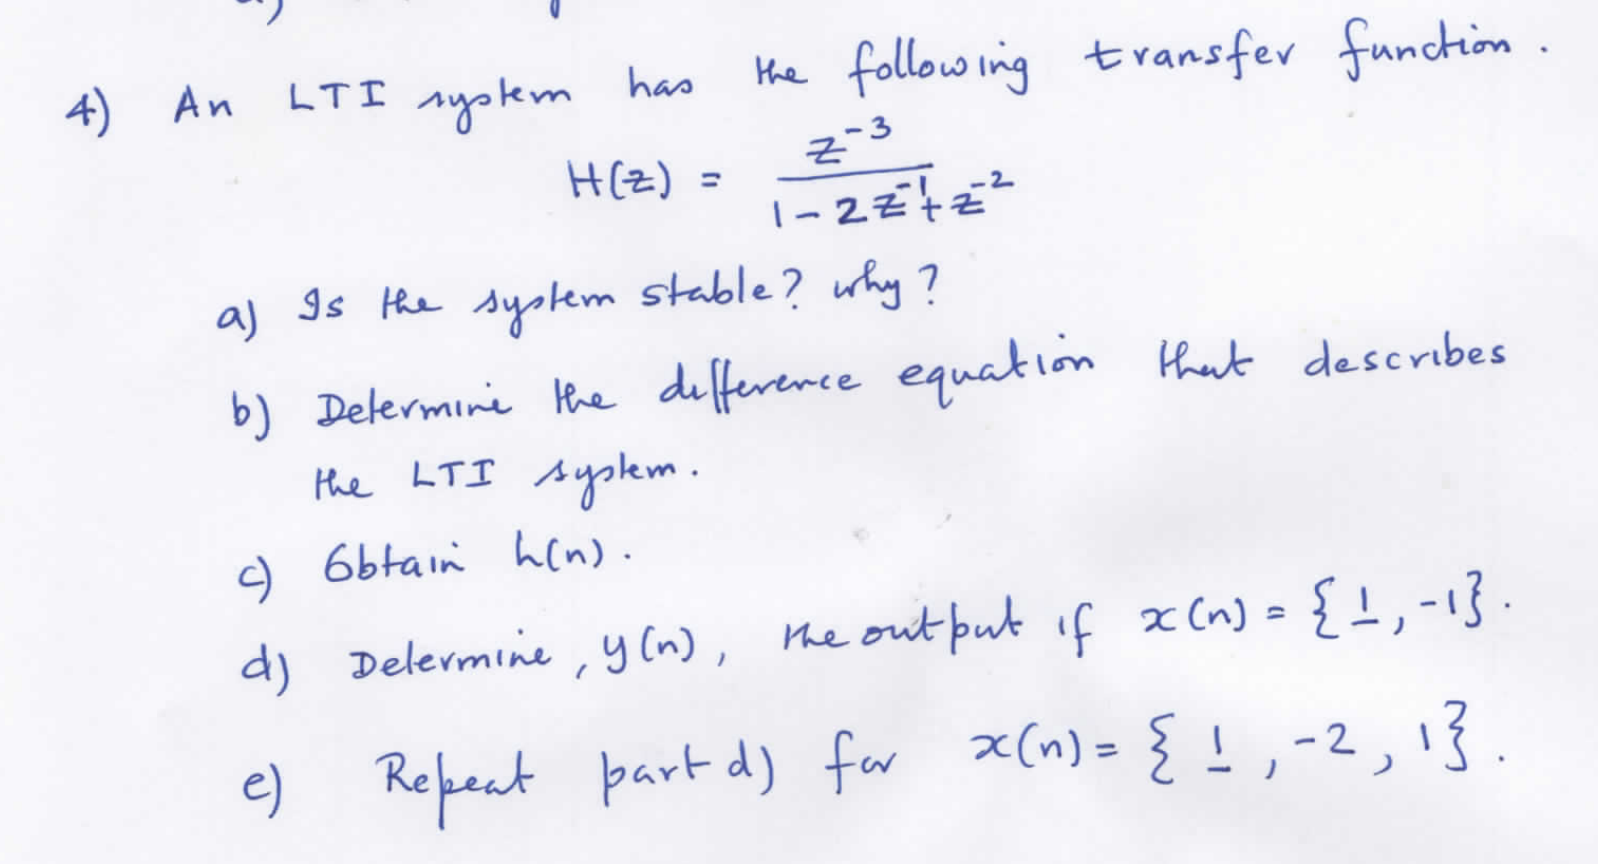 4) An LTI system has the following transfer function.
H(z) = z^-3 / (1 - 2z^-1 + z^-2)
a) Is the system stable? why?
b) Determine the difference equation that describes
the LTI system.
c) Obtain h(n).
d) Determine, y(n), the output if x(n) = {1, -1}.
e) Repeat part d) for x(n) = {1, -2, 1}.